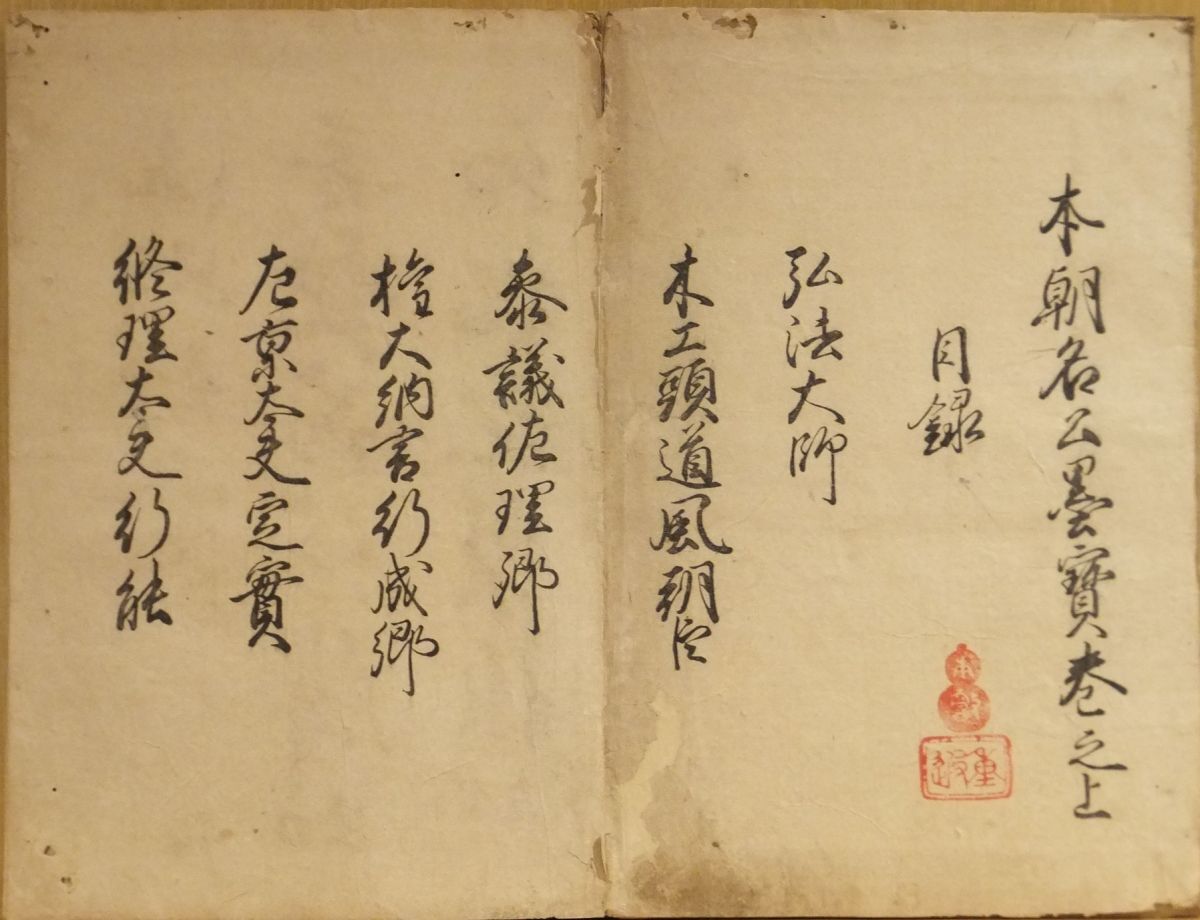 本朝名公墨寶巻之上
目録
弘法大師
木工頭道風朝臣
參議佐理卿
權大納言行成卿
左京大夫定實
修理大夫行能